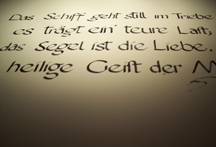 Das Schiff geht still im Triebe
es trägt ein' teure Last,
das Segel ist die Liebe,
heilige Geist der M